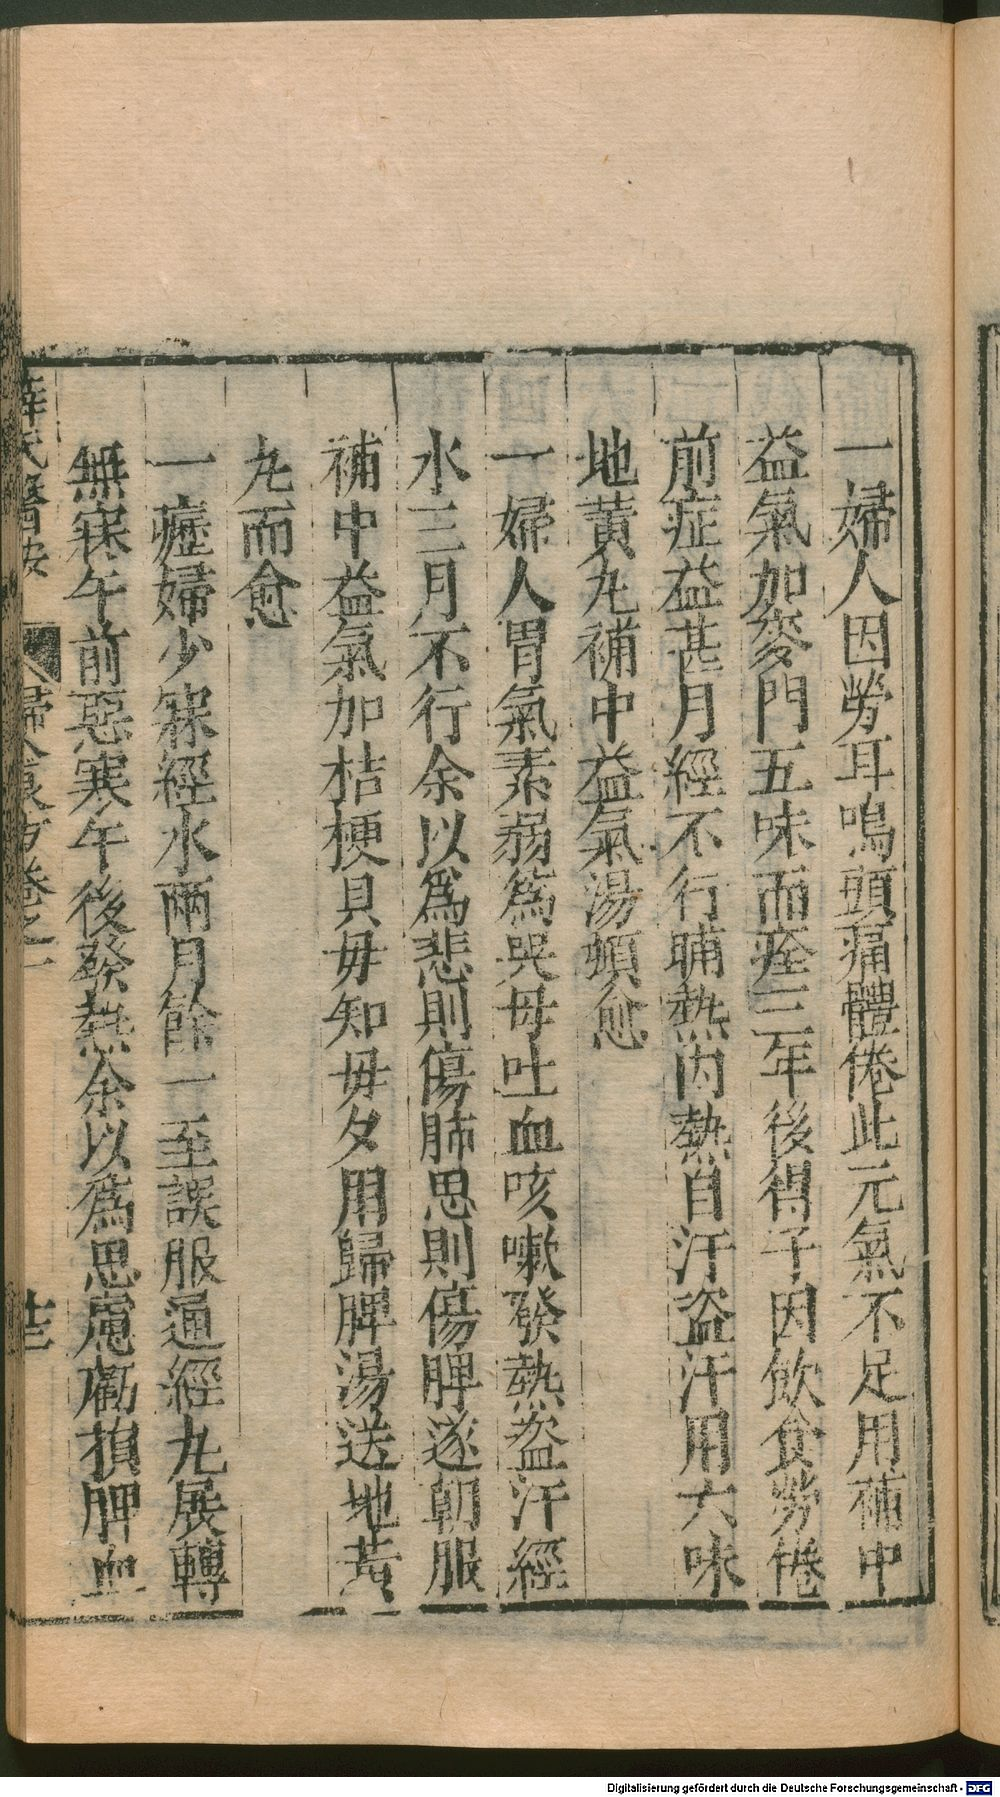 一婦人因勞耳鳴頭痛體倦此元氣不足用補中
益氣加麥門五味而痊三年後得子因飲食勞倦
前症益甚月經不行晡熱內熱自汗盜汗用六味
地黃丸補中益氣湯頓愈
一婦人胃氣素弱爲哭母吐血咳嗽發熱盜汗經
水三月不行余以爲悲則傷肺思則傷脾遂朝服
補中益氣加桔梗貝毋知毋夕用歸脾湯送地黃
丸而愈
一瘂婦少寐經水兩月餘一至誤服通經丸展轉
無寐午前惡寒午後發熱余以爲思慮虧損脾血
薛氏醫按 婦人良方卷之一
Digitalisierung gefördert durch die Deutsche Forschungsgemeinschaft - DFG